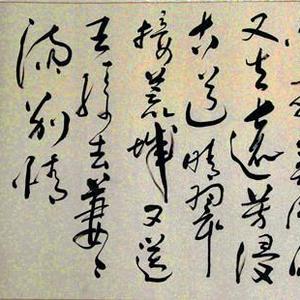 又生遠芳侵
古道晴翠
接荒城又送
王孫去萋々
滿別情